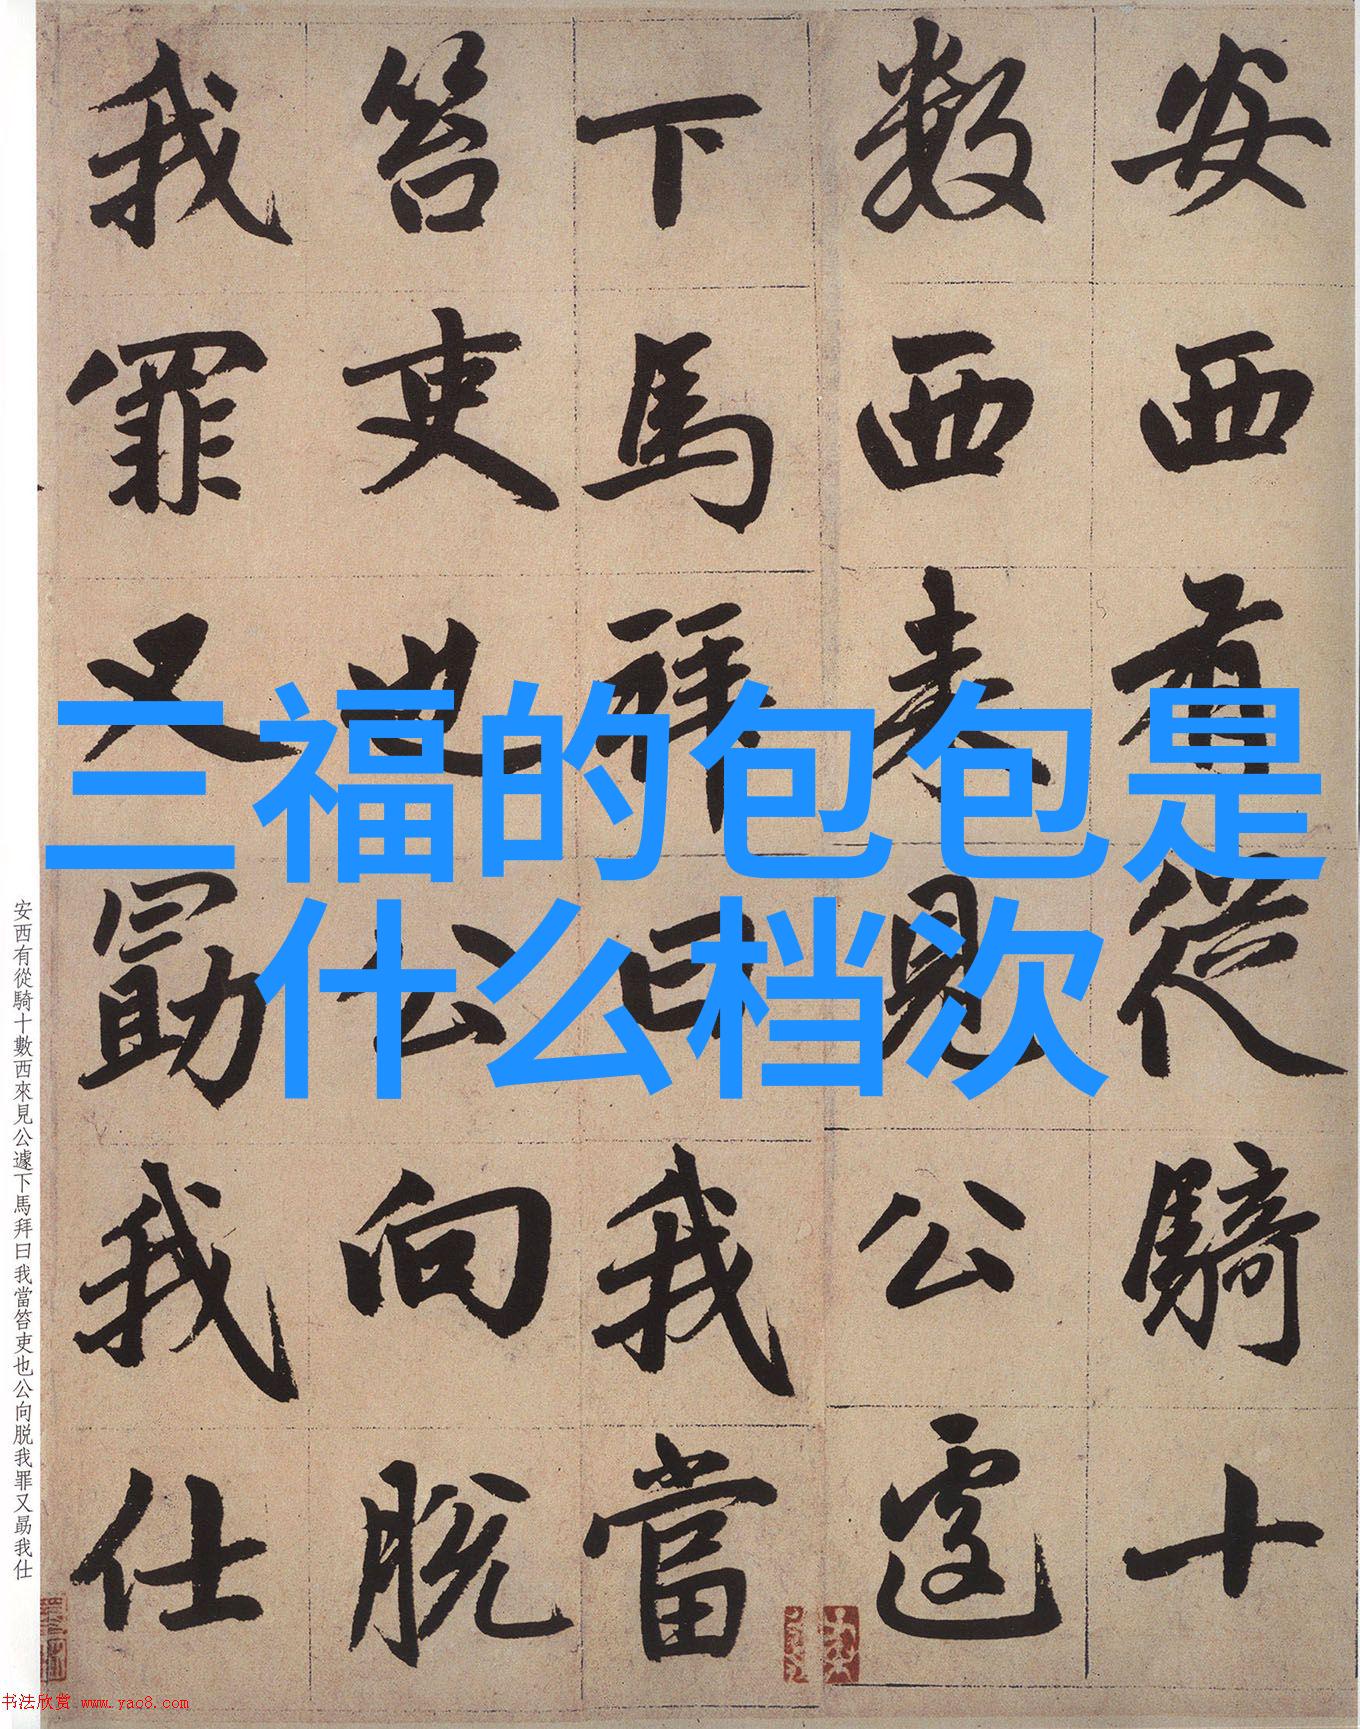 安西有從騎十
數西来見公遽
下馬拜曰我當
笞吏也公向脱
我罪又勗我仕
三福的包包是
什么档次
安西有從騎十數西來見公遽下馬拜曰我當笞吏也公向脱我罪又勗我仕
书法欣赏 www.yac8.com